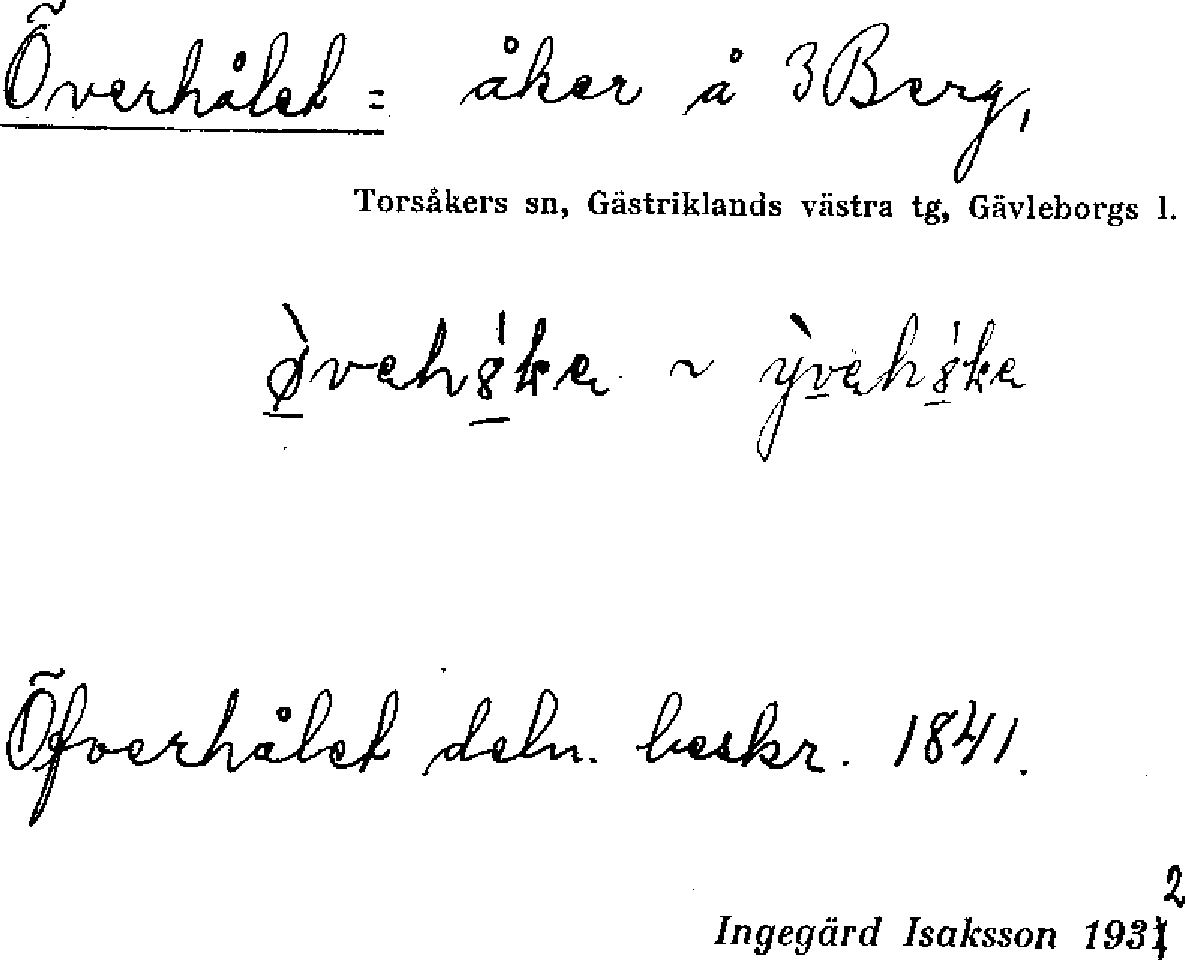 Överhålet = åker å 3 Berg,
Torsåkers sn, Gästriklands västra tg, Gävleborgs l.
~
Öfverhålet deln. beskr. 1841.
2
Ingegärd Isaksson 1931